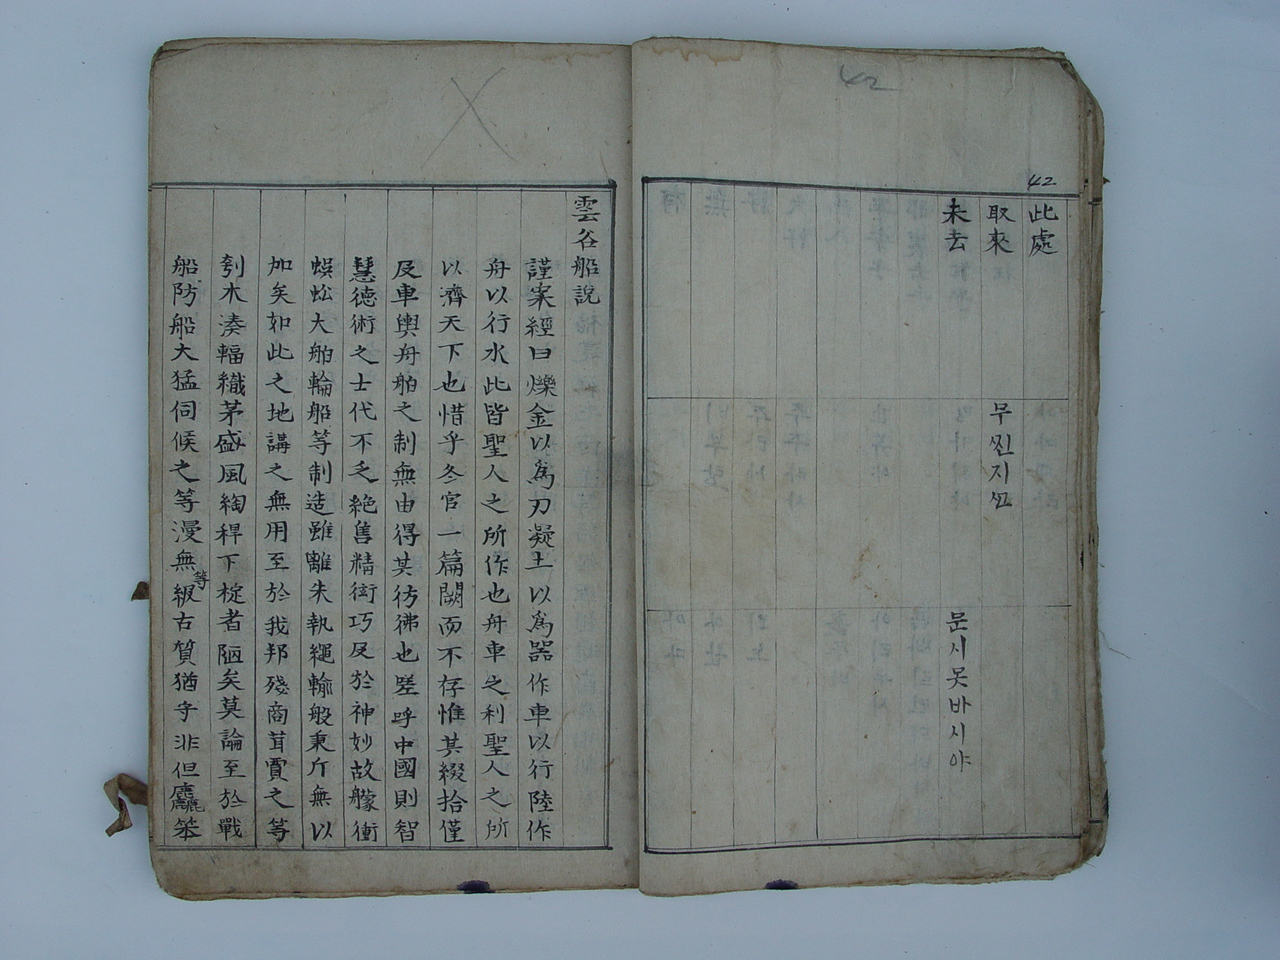 42
42
此處
取來 무씬지쇤
未去 문시못바시야
雲谷船說
謹案經曰爍金以爲刀凝土以爲器作車以行陸作
舟以行水此皆聖人之所作也舟車之利聖人之所
以濟天下也惜乎冬官一篇闕而不存惟其綴拾僅
及車輿舟舶之制無由得其彷彿也嗟呼中國則智
慧德術之士代不乏絶舊精衒巧反於神妙故艨衝
蜈蚣大舶輪船等制造雖離朱執繩輸般秉斤無以
加矣如此之地講之無用至於我邦殘商茸賈之等
刳木湊輻織茅盛風綯稈下椗者陋矣莫論至於戰
船防船大猛伺候之等漫無級等古質猶守非但麤笨